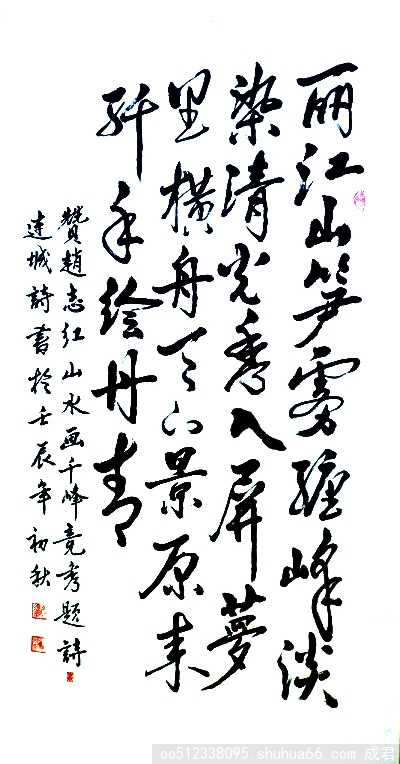 丽江山笋雾缠峰淡
染清光秀入屏梦
里横舟天下景原来
纤手绘丹青
贊趙志红山水画千峰竞秀題詩
城詩書於壬辰年初秋
oo512338095.shuhua66.com 成君